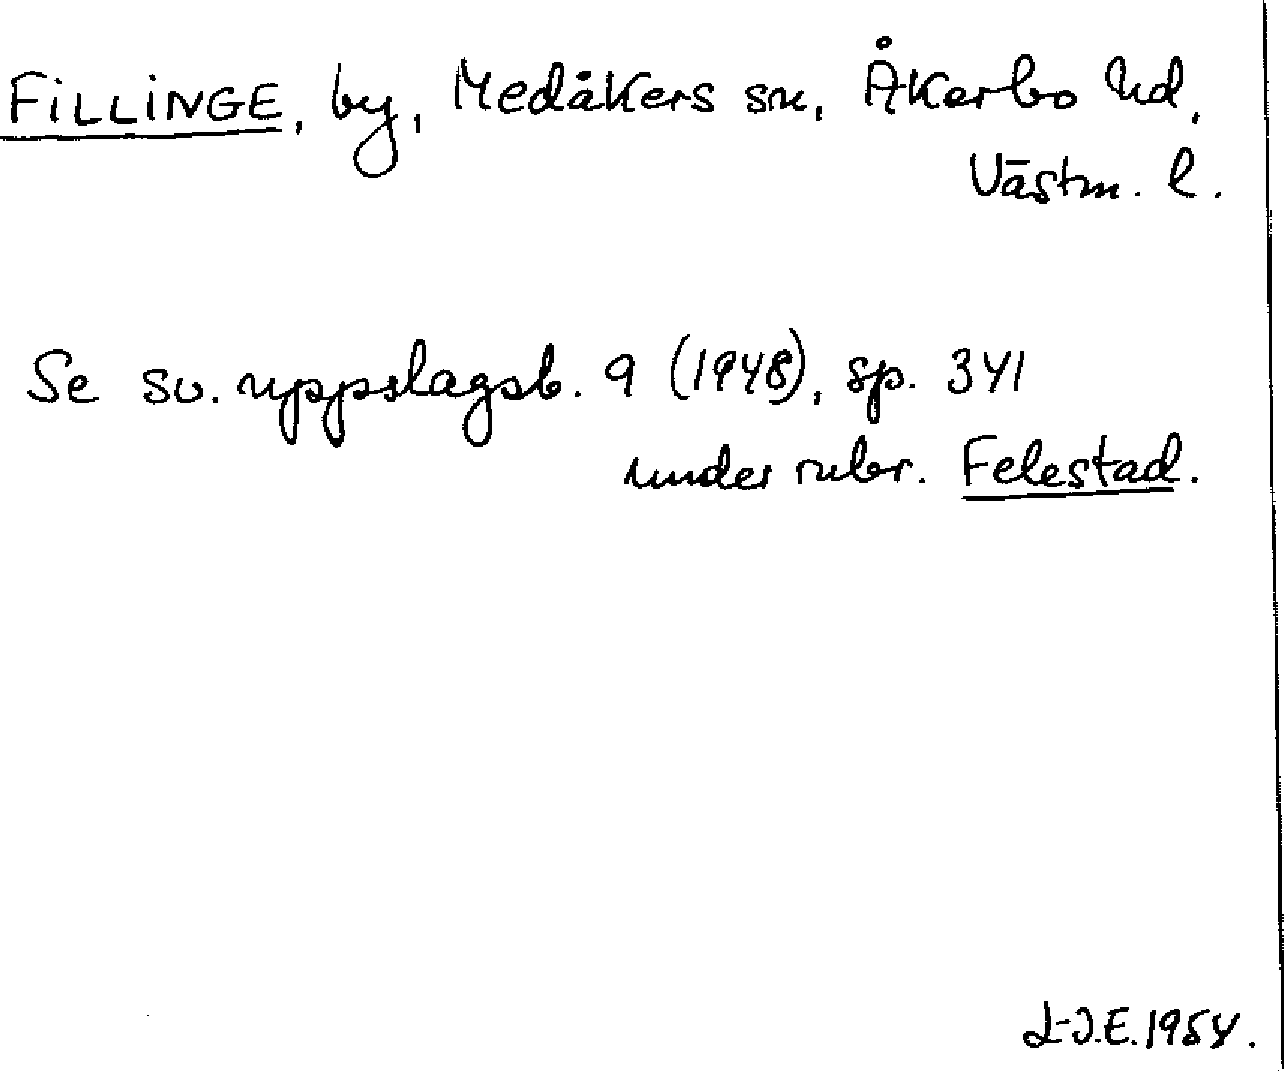 FILLINGE, by, Medåkers sn, Åkerbo hd,
Västm. l.
Se sv. uppslagsb. 9 (1948), sp. 341
under rubr. Felestad.
L-J.E. 1954.